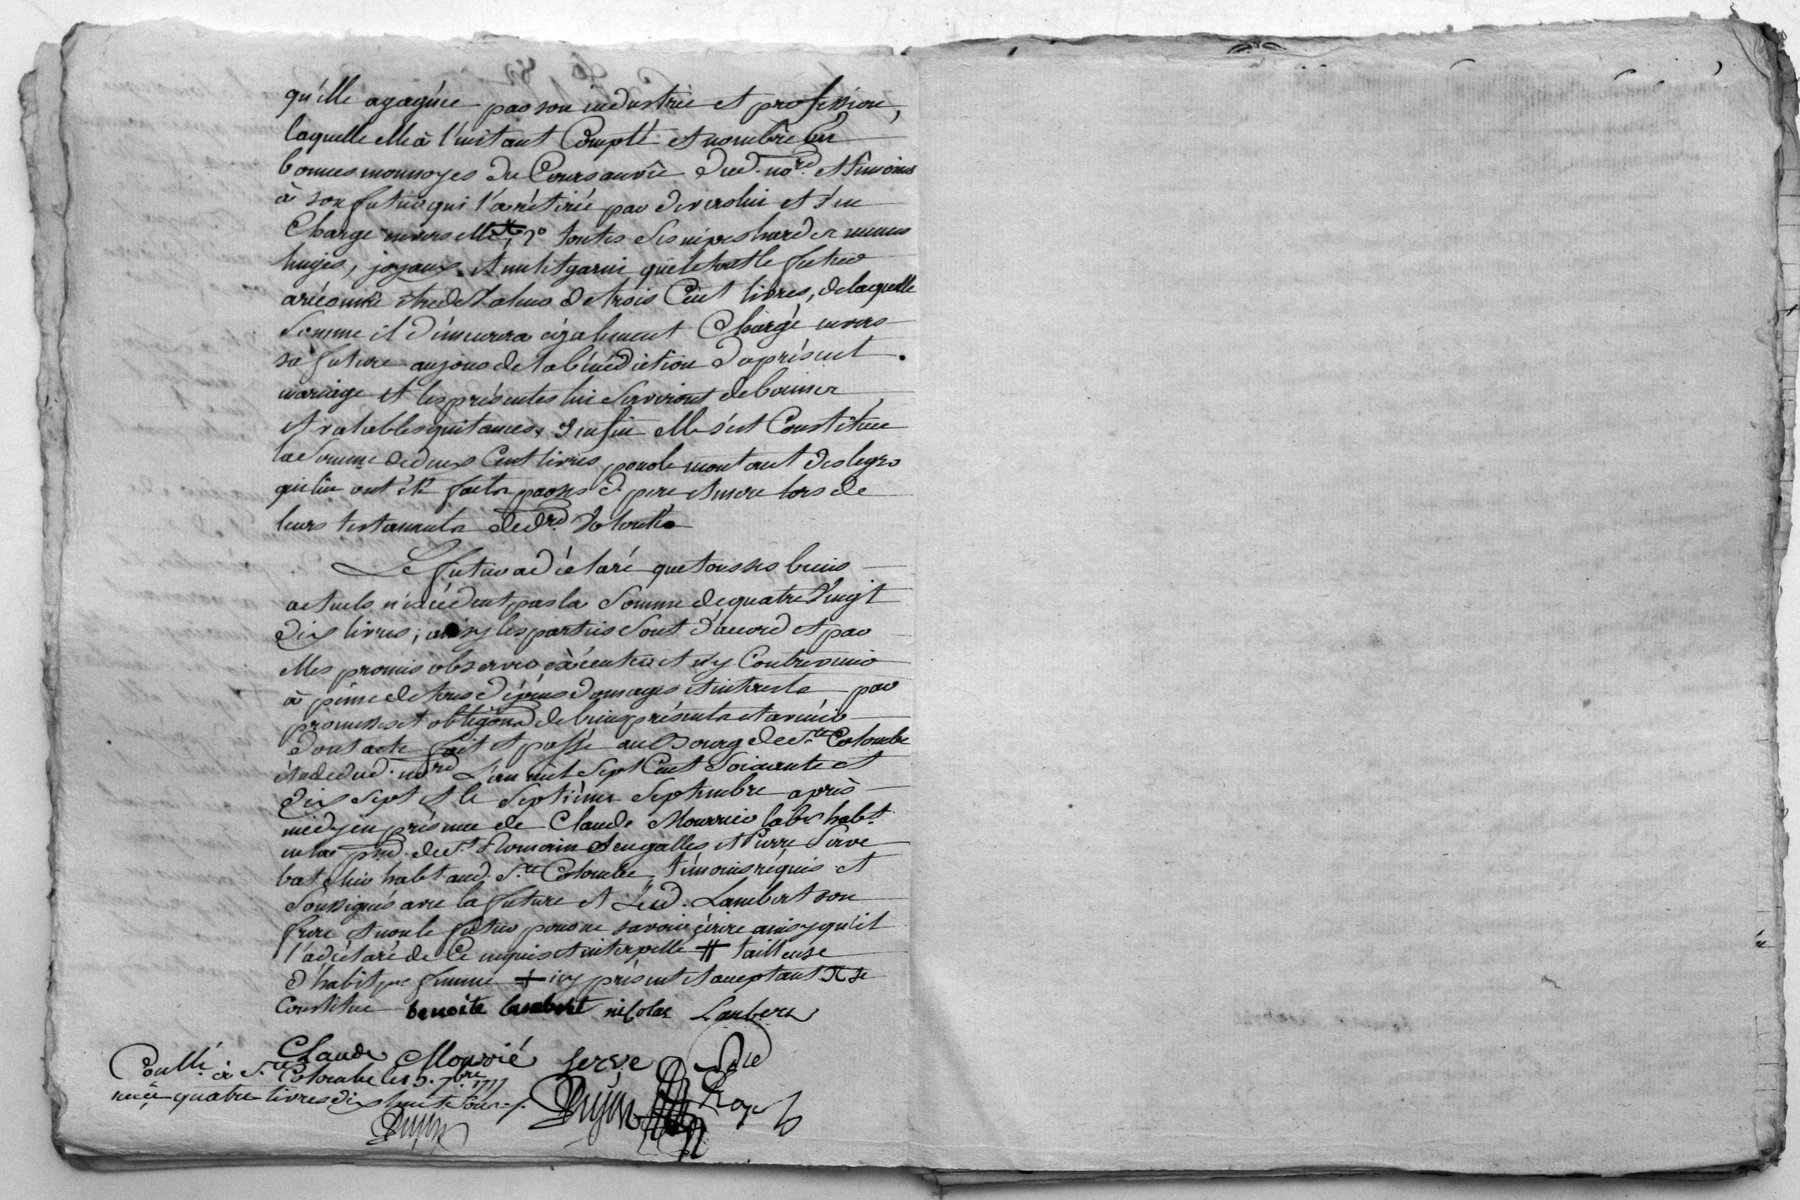 qu'elle a gagnée par son industrie et profession,
laquelle elle a à l'instant Compté et nombré en
bonnes monnoyes du Cours au vû dud. no.re et témoins
à son futur qui l'a rétirée par devers lui et s'en
Charge envers elle, 2o toutes ses nipes hardes menus
linges, joyaux et
a réconnu être de valeur de trois Cent livres, de laquelle
Somme il démeurera également Chargé envers
sa future au jour de la bénédiction du présent
mariage et les présentes lui Serviront de bonnes
et valables quitances, Enfin elle s'est Constituée
la Somme de deux Cent livres pour le montant des legs
qui lui ont été faits par ses d. pere et mere lors de
leurs testaments de d.re Volonté
Le futur a déclaré que tous ses biens
actuels n'excédent pas la Somme de quatre Vingt
dix livres; ainsy les parties Sont d'accord et par
Elles promis observer éxécuter et n'y Contrevenir
à peine de tous dépens domages et interets par
promesses et obligaon de biens présents et avenir
dont acte fait et passé au Bourg de S.te Colombe
étude dud. no.re L'an mil Sept Cent Soixante et
dix Sept et le Septième Septembre après
midy en présence de Claude Mourrier lab.r hab.t
en la de St. et Pierre Serve
habt aud. S.te Colombe, témoins réquis et
Soussignés avec la future et Led. Lambert son
frere et non le futur pour ne savoir écrire ainsy qu'il
l'a déclaré de Ce enquis et interpellé # tailleuse
d'habits pr femme + icy présent et aceptant se
Constitue benoite lambert nicolas Lambert
Claude Mourrié serve
Conllé à S.te Colombe le 7bre 1777
reçu quatre livres dix huit sous
Dujon